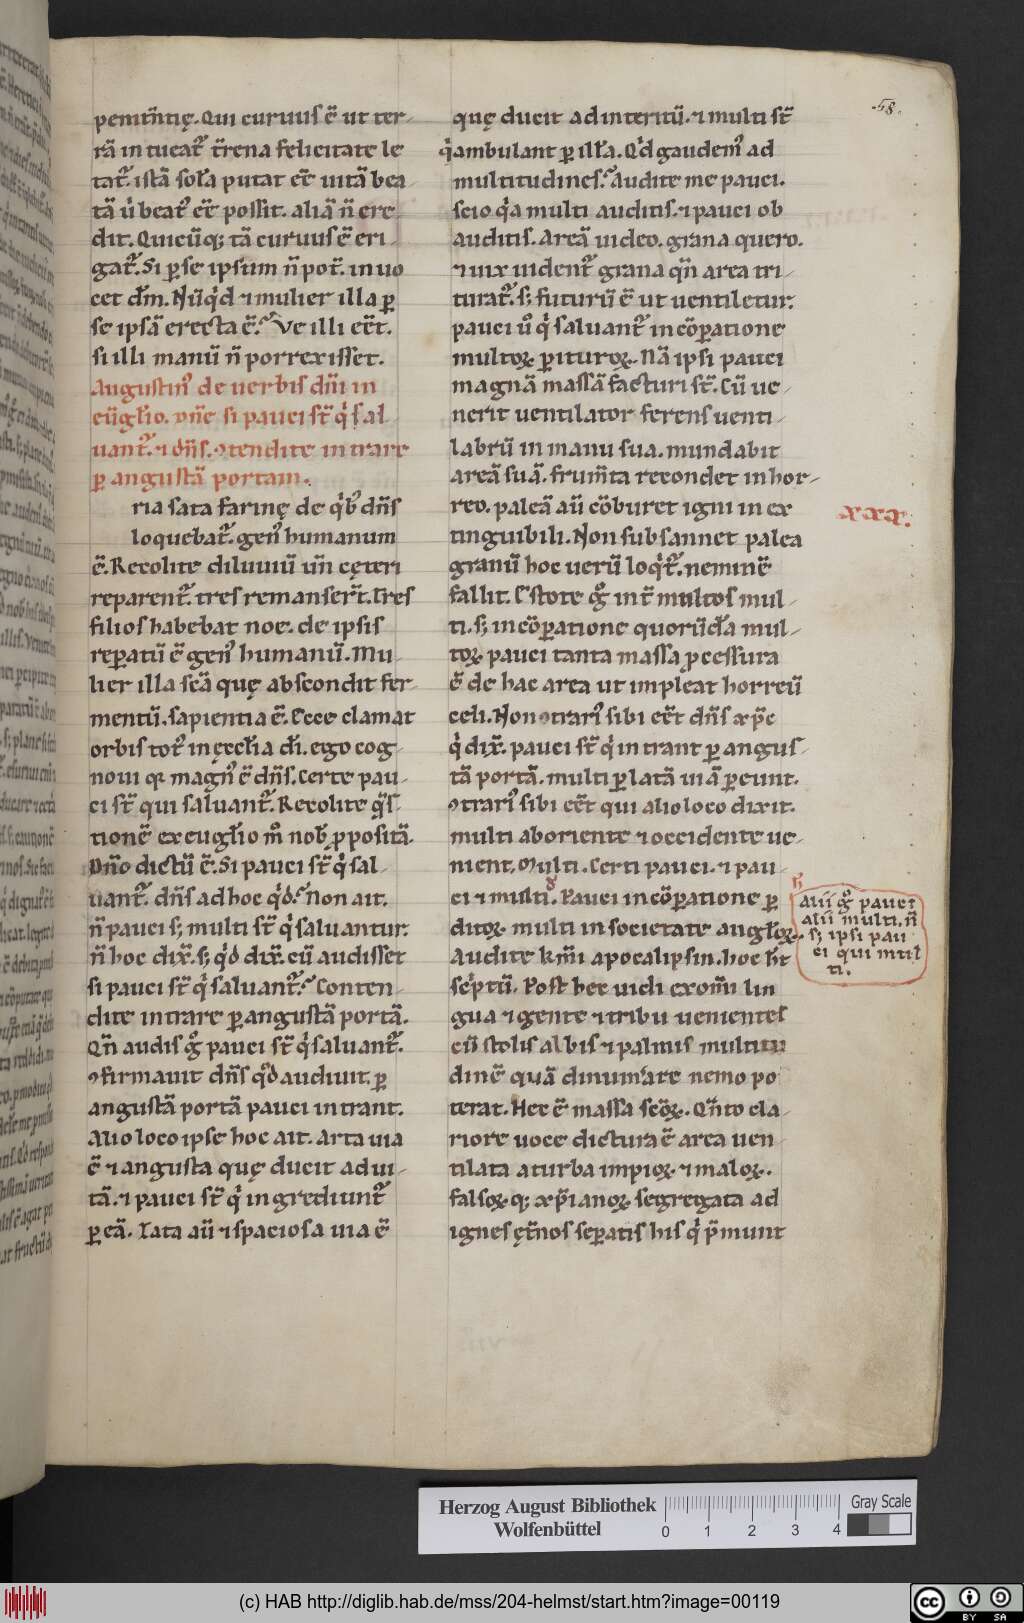 .58.
penitñtię. Qui curuus ē ut ter-
rā intueat᷑ t̄rena felicitate le
tat᷑. istā sol̄a putat eē uitā bea
tā ů beat᷒ eē possit. aliā n̄ cre
dit. Quicūq; tā curuus ē eri-
gat᷑. Si ꝑ se ipsum n̄ pot̄. inuo
cet dm̄. Nūq̇d ⁊ mulier illa ꝑ
se ipsā erecta ē? Ve illi eēt.
si illi manū n̄ porrexisset.
Augustin᷒ de uerbis dn̄i in
eūgl̄io. dn̄e si pauci st̄ q̇ sal
uant᷑. ⁊ dn̄s. ꝯtendite intrare
ꝑ angustā portam.
ria sata farinę de q̇b᷒ dn̄s
loquebat᷑. gen᷒ humanum
ē. Recolite diluuiū un̄ cęteri
reparent᷑. tres remanser̄t. Tres
filios habebat noe. de ipsis
reꝑatū ē gen᷒ humanū. Mu-
lier illa scā quę abscondit fer-
mentū. sapientia ē. Ecce clamat
orbis tot᷒ in ęccl̄ia di̅. ego cog-
noui qꝛ magn᷒ ē dn̄s. Certe pau-
ci st̄ qui saluant᷑. Recolite q̄s
tionē ex eugl̄io m̊ nob̄ ꝓpositā.
Dn̄o dictū ē. Si pauci st̄ q̇ sal-
uant᷑. dn̄s ad hoc q̇d? Non ait.
n̄ pauci s; multi st̄ q̇ saluantur.
n̄ hoc dix̄. s; q̇d dix̄. cū audisset
si pauci st̄ q̇ saluant᷑? Conten-
dite intrare ꝑ angustā portā.
Qn̄ audis g̊ pauci st̄ q̇ saluant᷑.
ꝯfirmauit dn̄s qd̊ audiuit. ꝑ
angustā portā pauci intrant.
Alio loco ipse hoc ait. Arta uia
ē ⁊ angusta quę ducit ad ui-
tā. ⁊ pauci st̄ q̇ ingrediunt᷑
ꝑ eā. Lata aū ⁊ spaciosa uia ē
quę ducit ad interitū. ⁊ multi st̄
q̇ ambulant ꝑ ill̄a. Qḋ gaudem᷒ ad
multitudines? Audite me pauci.
scio q̇a multi auditis. ⁊ pauci ob
auditis. Areā uideo. grana quero.
⁊ uix uident᷑ grana qn̄ area tri-
turat᷑. s; futurū ē ut uentiletur.
pauci ů q̇ saluant᷑ in cōꝑatione
multoꝝ ꝑituroꝝ. Nā ipsi pauci
magnā massā facturi st̄. Cū ue-
nerit uentilator ferens uenti-
labrū in manu sua. mundabit
areā suā. frum̄ta recondet in hor-
reo. paleā aū cōburet igni inex
tinguibili. Non subsannet palea
granū hoc uerū loq̇t᷑. neminē
fallit. Estote g̊ int̄ multos mul-
ti. s; in cōꝑatione quorūda̅ mul-
toꝝ pauci tanta massa ꝓcessura
ē de hac area ut impleat horreū
celi. Non ꝯtrari᷒ sibi eēt dn̄s xp̄c
q̇ dix̄. pauci st̄ q̇ intrant ꝑ angus-
tā portā. multi ꝑ latā uiā ꝑeunt.
ꝯtrari᷒ sibi eēt qui alio loco dixit.
multi ab oriente ⁊ occidente ue-
nient. Multi. Certi pauci. ⁊ pau-
ci ⁊ multi. Pauci in cōꝑatione ꝑ
ditoꝝ multi in societate angl̄oꝝ.
Audite km̄i apocalipsin. hoc ħt
scṗtū. Post hec uidi ex om̄i lin
gua ⁊ gente ⁊ tribu uenientes
cū stolis albis ⁊ palmis multitu
dinē quā dinumare nemo po
terat. Hec ē massa scōꝝ. Qn̄to cla-
riore uoce dictura ē area uen-
tilata a turba impioꝝ ⁊ maloꝝ.
falsoꝝ q; xp̄ianoꝝ segregata ad
ignes ęt̄nos seꝑatis his q̇ p̄munt
xxx.
Alii g̊ pauci
alii multi. n̄
s; ipsi pau
ci qui mul
ti.
Herzog August Bibliothek
Wolfenbüttel
0 1 2 3 4
Gray Scale
(c) HAB http://diglib.hab.de/mss/204-helmst/start.htm?image=00119
cc BY SA